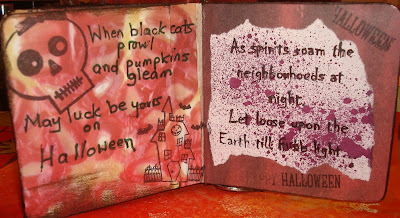 When black cats
prowl
and pumpkins
gleam
May luck be yours
on
Halloween
HALLOWEEN
As spirits roam the
neighborhoods at
night,
Let loose upon the
Earth till light
HALLOWEEN